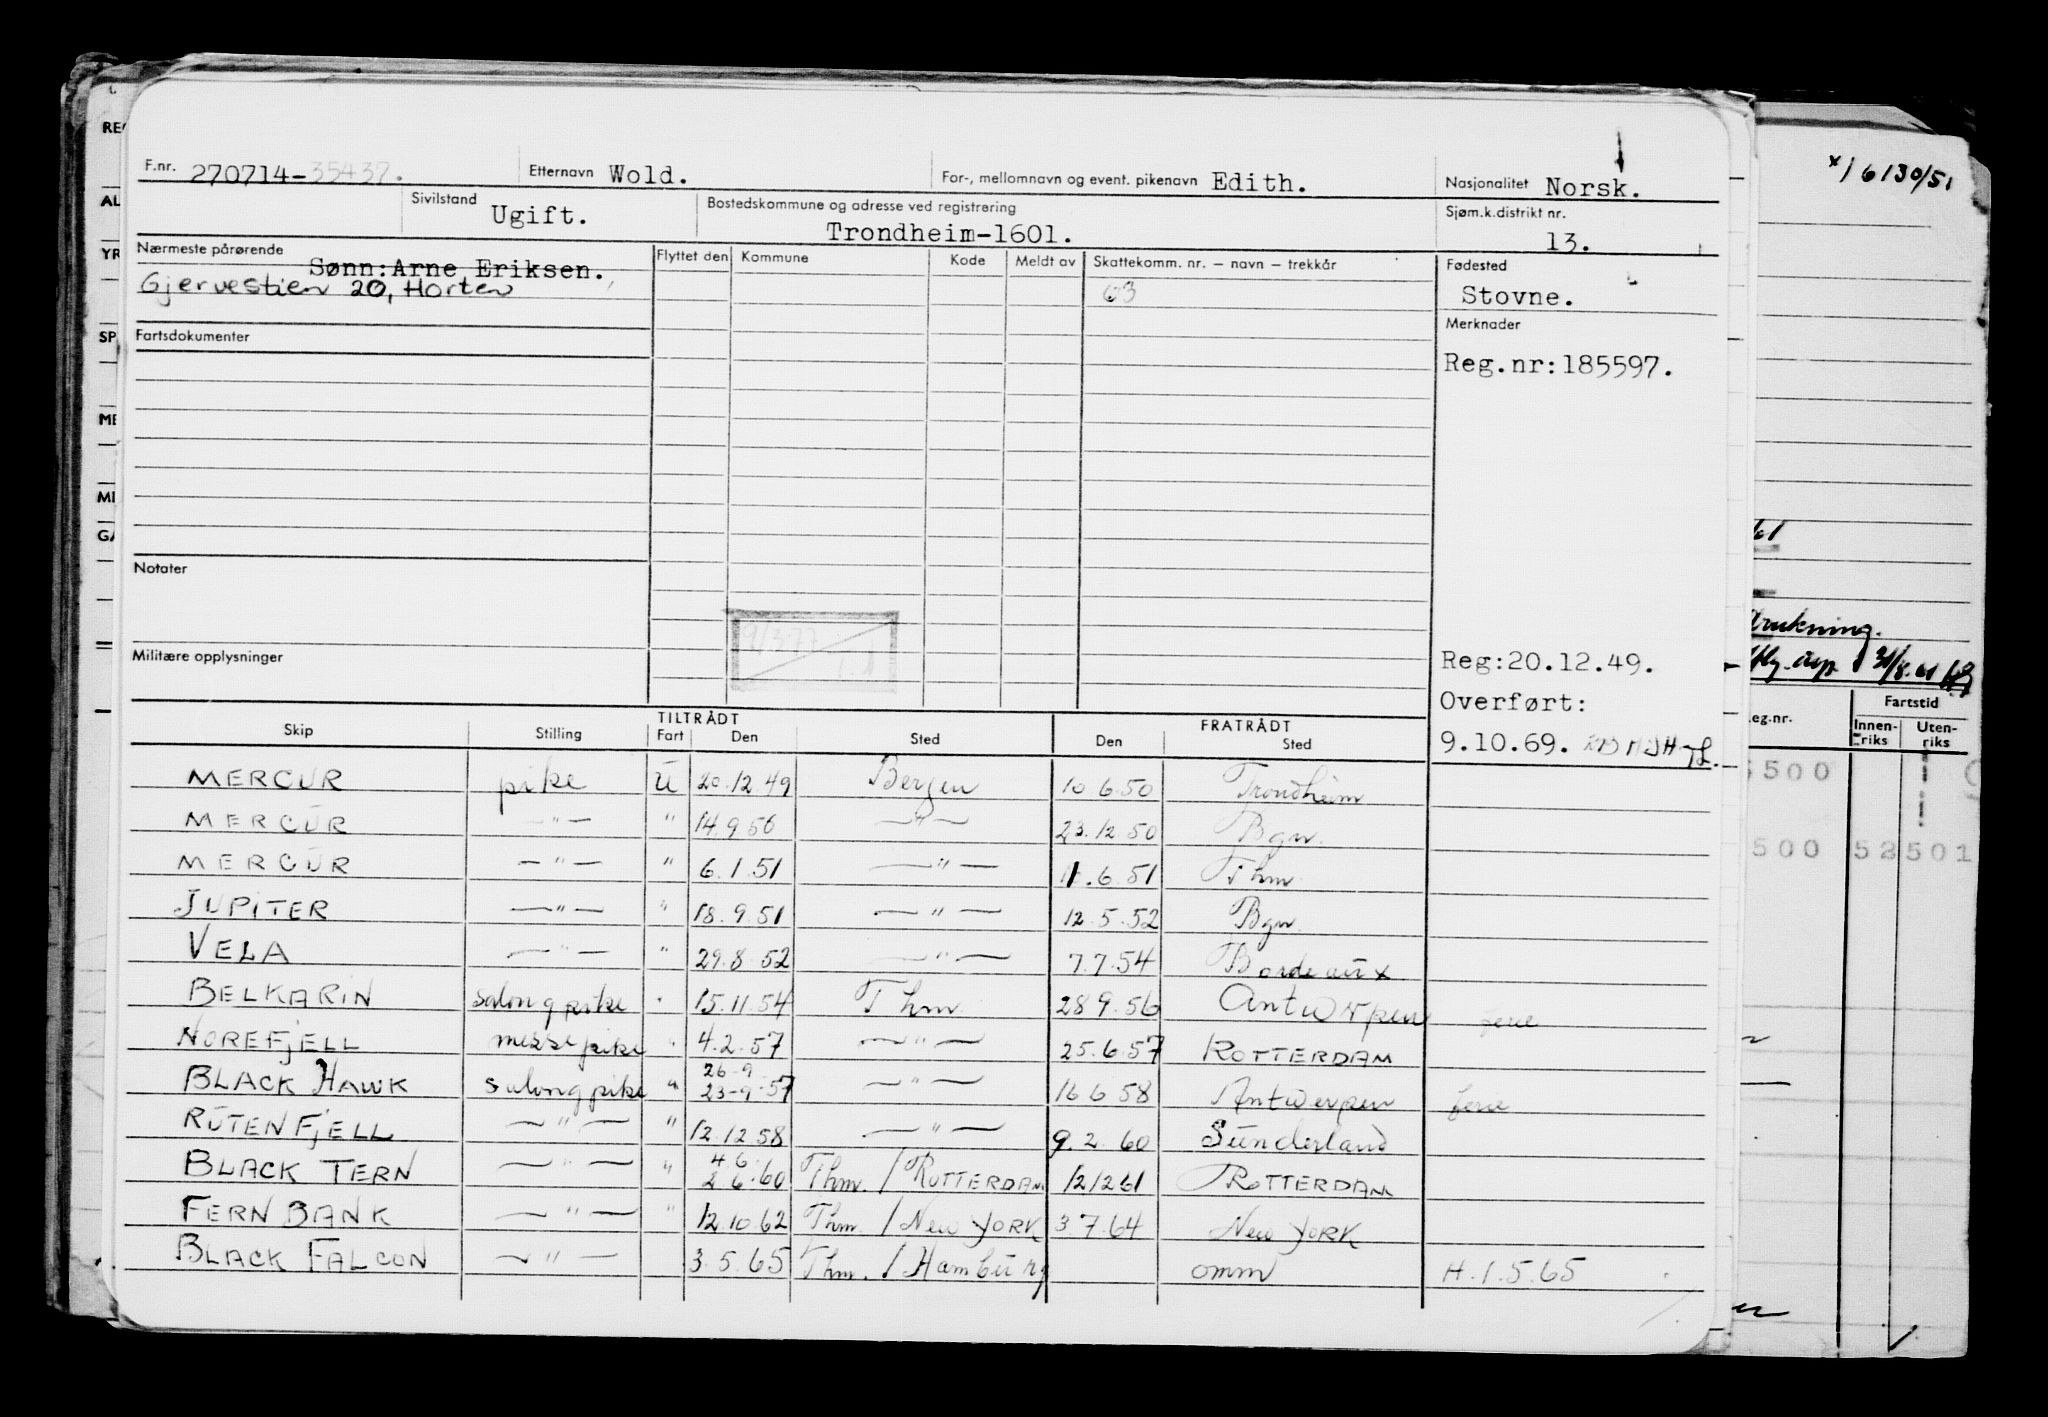 F.nr. 270714-35437. Etternavn Wold. For-, mellomnavn og event. pikenavn Edith. Nasjonalitet Norsk.
Sivilstand Ugift. Bostedskommune og adresse ved registrering Trondheim-1601. Sjøm.k.distrikt nr. 13.
Nærmeste pårørende Sønn:Arne Eriksen. Flyttet den Kommune Kode Meldt av Skattekomm. nr. – navn – trekkår Fødested
Gjervestien 20, Horten 63 Stovne.
Fartsdokumenter Merknader
Reg.nr:185597.
Notater
9/3-77
Militære opplysninger Reg:20.12.49.
Overført:
9.10.69.
TILTRÅDT FRATRÅDT
Skip Stilling Fart Den Sted Den Sted
MERCUR pike U 20.12.49 Bergen 10 6.50 Trondheim
MERCUR — " — " 14.9 50 — " — 23.12 50 Bgn.
MERCUR — " — " 6.1.51 — " — 11.6.51 Thm.
JUPITER — " — " 18.9.51 — " — 12.5.52 Bgn.
VELA — " — " 29.8.52 — " — 7.7.54 Bordeaux
BELKARIN salongpike " 15.11.54 Thm. 28 9.56 Antwerpen ferie
NOREFJELL messepike " 4.2.57 — " — 25.6.57 ROTTERDAM
26-9
BLACK HAWK salongpike " 23-9-57 — " — 16 6 58 Antwerpen ferie
RUTENFJELL — " — " 12.12.58 — " — 9.2.60 Sunderland
4 6
BLACK TERN — " — " 2 6.60 Thm. / ROTTERDAM 12/12 61 ROTTERDAM
FERN BANK — " — " 12.10.62 Thm. / New YORK 3 7.64 New YORK
BLACK FALCON — " — 3.5.65 Thm. / Hamburg omm H.1.5.65
REG
AL
YR
SP
ME
MI
GA
x) 6130/51
61
drukning.
31/8.61
Fartstid
eg.nr. Innenriks Utenriks
500
500 52501